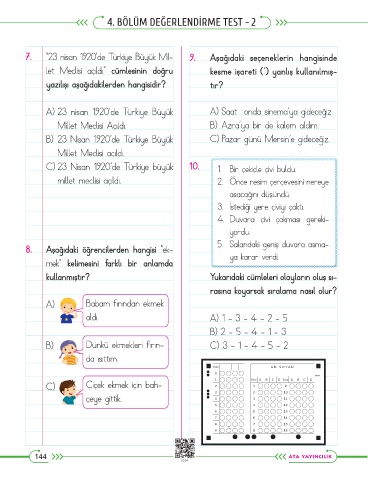 4. BÖLÜM DEĞERLENDİRME TEST - 2
7. "23 nisan 1920'de Türkiye Büyük Mil-
let Meclisi açıldı." cümlesinin doğru
yazılışı aşağıdakilerden hangisidir?
A) 23 nisan 1920'de Türkiye Büyük
Millet Meclisi Açıldı.
B) 23 Nisan 1920'de Türkiye Büyük
Millet Meclisi açıldı.
C) 23 Nisan 1920'de Türkiye büyük
millet meclisi açıldı.
8. Aşağıdaki öğrencilerden hangisi "ek-
mek" kelimesini farklı bir anlamda
kullanmıştır?
A) Babam fırından ekmek
aldı.
B) Dünkü ekmekleri fırın-
da ısıttım.
C) Çiçek ekmek için bah-
çeye gittik.
9. Aşağıdaki seçeneklerin hangisinde
kesme işareti (') yanlış kullanılmış-
tır?
A) Saat onda sinema'ya gideceğiz.
B) Azra'ya bir de kalem aldım.
C) Pazar günü Mersin'e gideceğiz.
10.
1. Bir çekiçle çivi buldu.
2. Önce resim çerçevesini nereye
asacağını düşündü.
3. İstediği yere çiviyi çaktı.
4. Duvara çivi çakması gereki-
yordu.
5. Salondaki geniş duvara asma-
ya karar verdi.
Yukarıdaki cümleleri olayların oluş sı-
rasına koyarsak sıralama nasıl olur?
A) 1 - 3 - 4 - 2 - 5
B) 2 - 5 - 4 - 1 - 3
C) 3 - 1 - 4 - 5 - 2
144
ATA YAYINCILIK